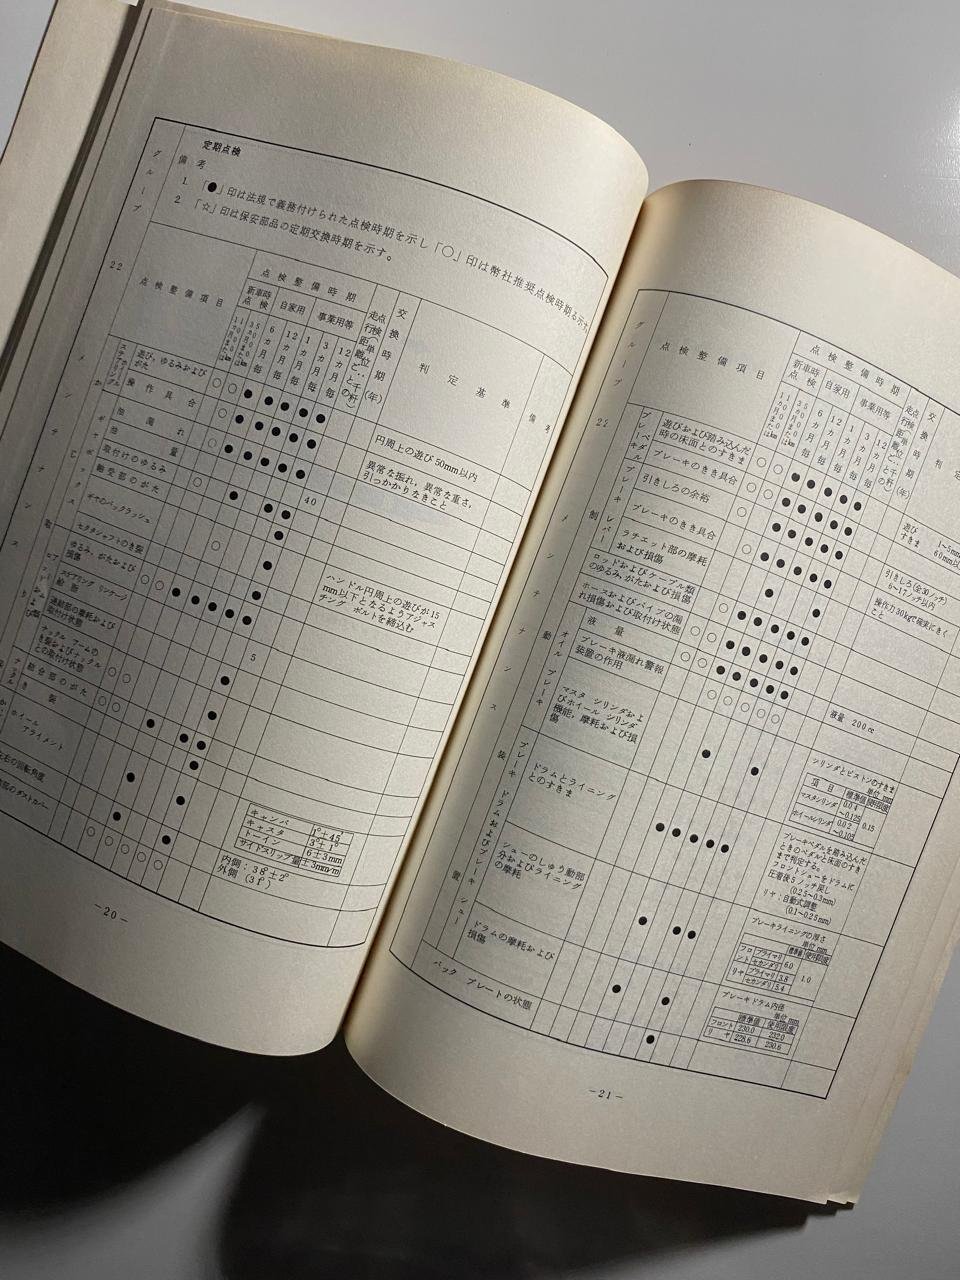 定期点検
備考
1. 「●」印は法規で義務付けられた点検時期を示し「○」印は弊社推奨点検時期を示す。
2 「☆」印は保安部品の定期交換時期を示す。
グループ
22
点検整備項目
点検整備時期
新車時点検
自家用
事業用等
走行距離ごと
点検
(単位:千粁)
交換時期(年)
判定基準
備考
1カ月または1000km
6カ月毎
12カ月毎
1カ月毎
3カ月毎
12カ月毎
ステアリングハンドル
遊び、ゆるみおよびがた ○ ○ ● ● ● ● ● 円周上の遊び50mm以内
操作具合 ○ ● ● ● ● ● 異常な振れ、異常な重さ、引っかかりなきこと
油漏れ
油量 40
取付けのゆるみ
軸受部のがた
ギヤのバックラッシュ ハンドル円周上の遊びが15mm以下となるようアジャスチング ボルトを締込む
セクタシャフトのき裂
ゆるみ、がたおよび損傷
給脂 5
連結部の摩耗および取付け状態
ナックル アームのき裂およびナックルとの取付け状態
結合部のがた
き裂
ホイール アライメント
キャンバ 1°±45′
キャスタ 3°±1°
トーイン 6±3mm
サイドスリップ量 ±3mm/m
左右の回転角度 内側:38°±2°
外側(31°)
部のダストカバー
－20－
グループ
22
点検整備項目
点検整備時期
新車時点検
自家用
事業用等
走行距離ごと
点検
(単位:千粁)
交換時期(年)
判定
1カ月または1000km
6カ月毎
12カ月毎
1カ月毎
3カ月毎
12カ月毎
メンテナンス
制動装置
ブレーキペダル
遊びおよび踏み込んだ時の床面とのすきま 遊び 1～5mm
すきま 60mm以
ブレーキのきき具合
ブレーキレバー
引きしろの余裕 引きしろ(全30ノッチ)
6～17ノッチ以内
ブレーキのきき具合 操作力30kgで確実にきくこと
ラチエット部の摩耗および損傷
ロッドおよびケーブル類のゆるみ、がたおよび損傷
ホースおよびパイプの漏れ損傷および取付け状態
オイルブレーキ
液量 液量 200cc
ブレーキ液漏れ警報装置の作用
マスタ シリンダおよびホイール シリンダ機能、摩耗および損傷
シリンダとピストンのすきま
単位 mm
項目 標準値 使用限度
マスタシリンダ 0.04～0.125 0.15
ホイールシリンダ 0.02～0.105
ブレーキドラムおよびブレーキシュー
ドラムとライニングとのすきま
ブレーキペダルを踏み込んだときのペダルと床面のすきまで判定する。
フロントシューをドラムに圧着後5ノッチ戻し
(0.25～0.3mm)
リヤ:自動式調整
(0.1～0.25mm)
シューのしゅう動部分およびライニングの摩耗
ブレーキライニングの厚さ
単位 mm
標準値 使用限度
フロント プライマリ 6.0 1.0
セカンダリ
リヤ プライマリ 3.8
セカンダリ 5.4
ドラムの摩耗および損傷
ブレーキドラム内径
単位 mm
標準値 使用限度
フロント 230.0 232.0
リヤ 228.6 230.6
バック プレートの状態
－21－